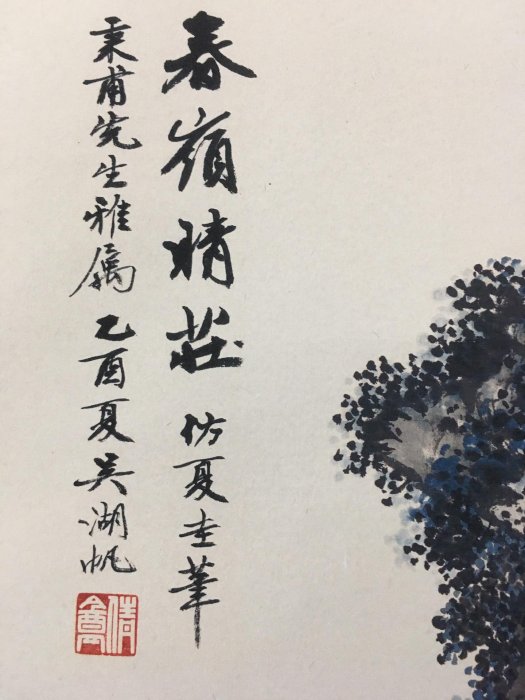 春嶺晴莊 仿夏圭筆
秉甫先生雅属 乙酉夏吴湖帆
倩盦